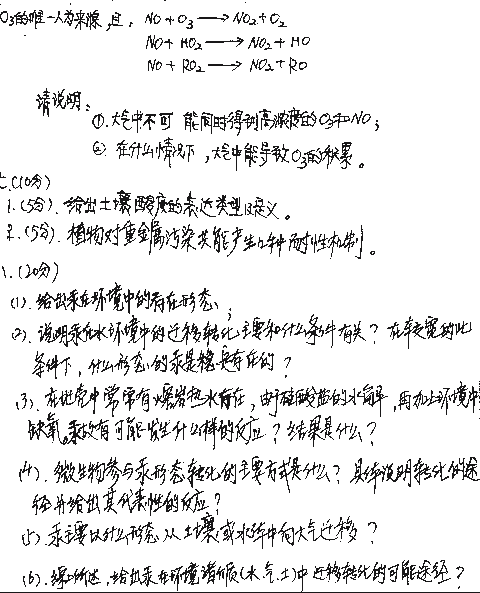 O₃的唯一人为来源,且, NO + O₃ ⟶ NO₂ + O₂
NO + HO₂ ⟶ NO₂ + HO
NO + RO₂ ⟶ NO₂ + RO
请说明:
①. 大气中不可能同时得到高浓度的O₃和NO;
②. 在什么情况下,大气中能导致O₃的积累。
七.(10分)
1.(5分). 给出土壤酸度的表达类型及定义。
2.(5分). 植物对重金属污染共能产生几种耐性机制。
八.(20分)
(1). 给出汞在环境中的存在形态;
(2). 说明汞在水环境中的迁移转化主要和什么条件有关?在较宽的此
条件下,什么形态的汞是稳定存在的?
(3). 在地壳中常常有岩热水存在,由于硅酸盐的水解,再加上环境中
缺氧。汞故有可能发生什么样的反应?结果是什么?
(4). 微生物参与汞形态转化的主要方式是什么?具体说明转化的途
径并给出其代表性的反应?
(5). 汞主要以什么形态从土壤或水体中向大气迁移?
(6). 综上所述,给出汞在环境诸介质(水.气.土)中迁移转化的可能途径?